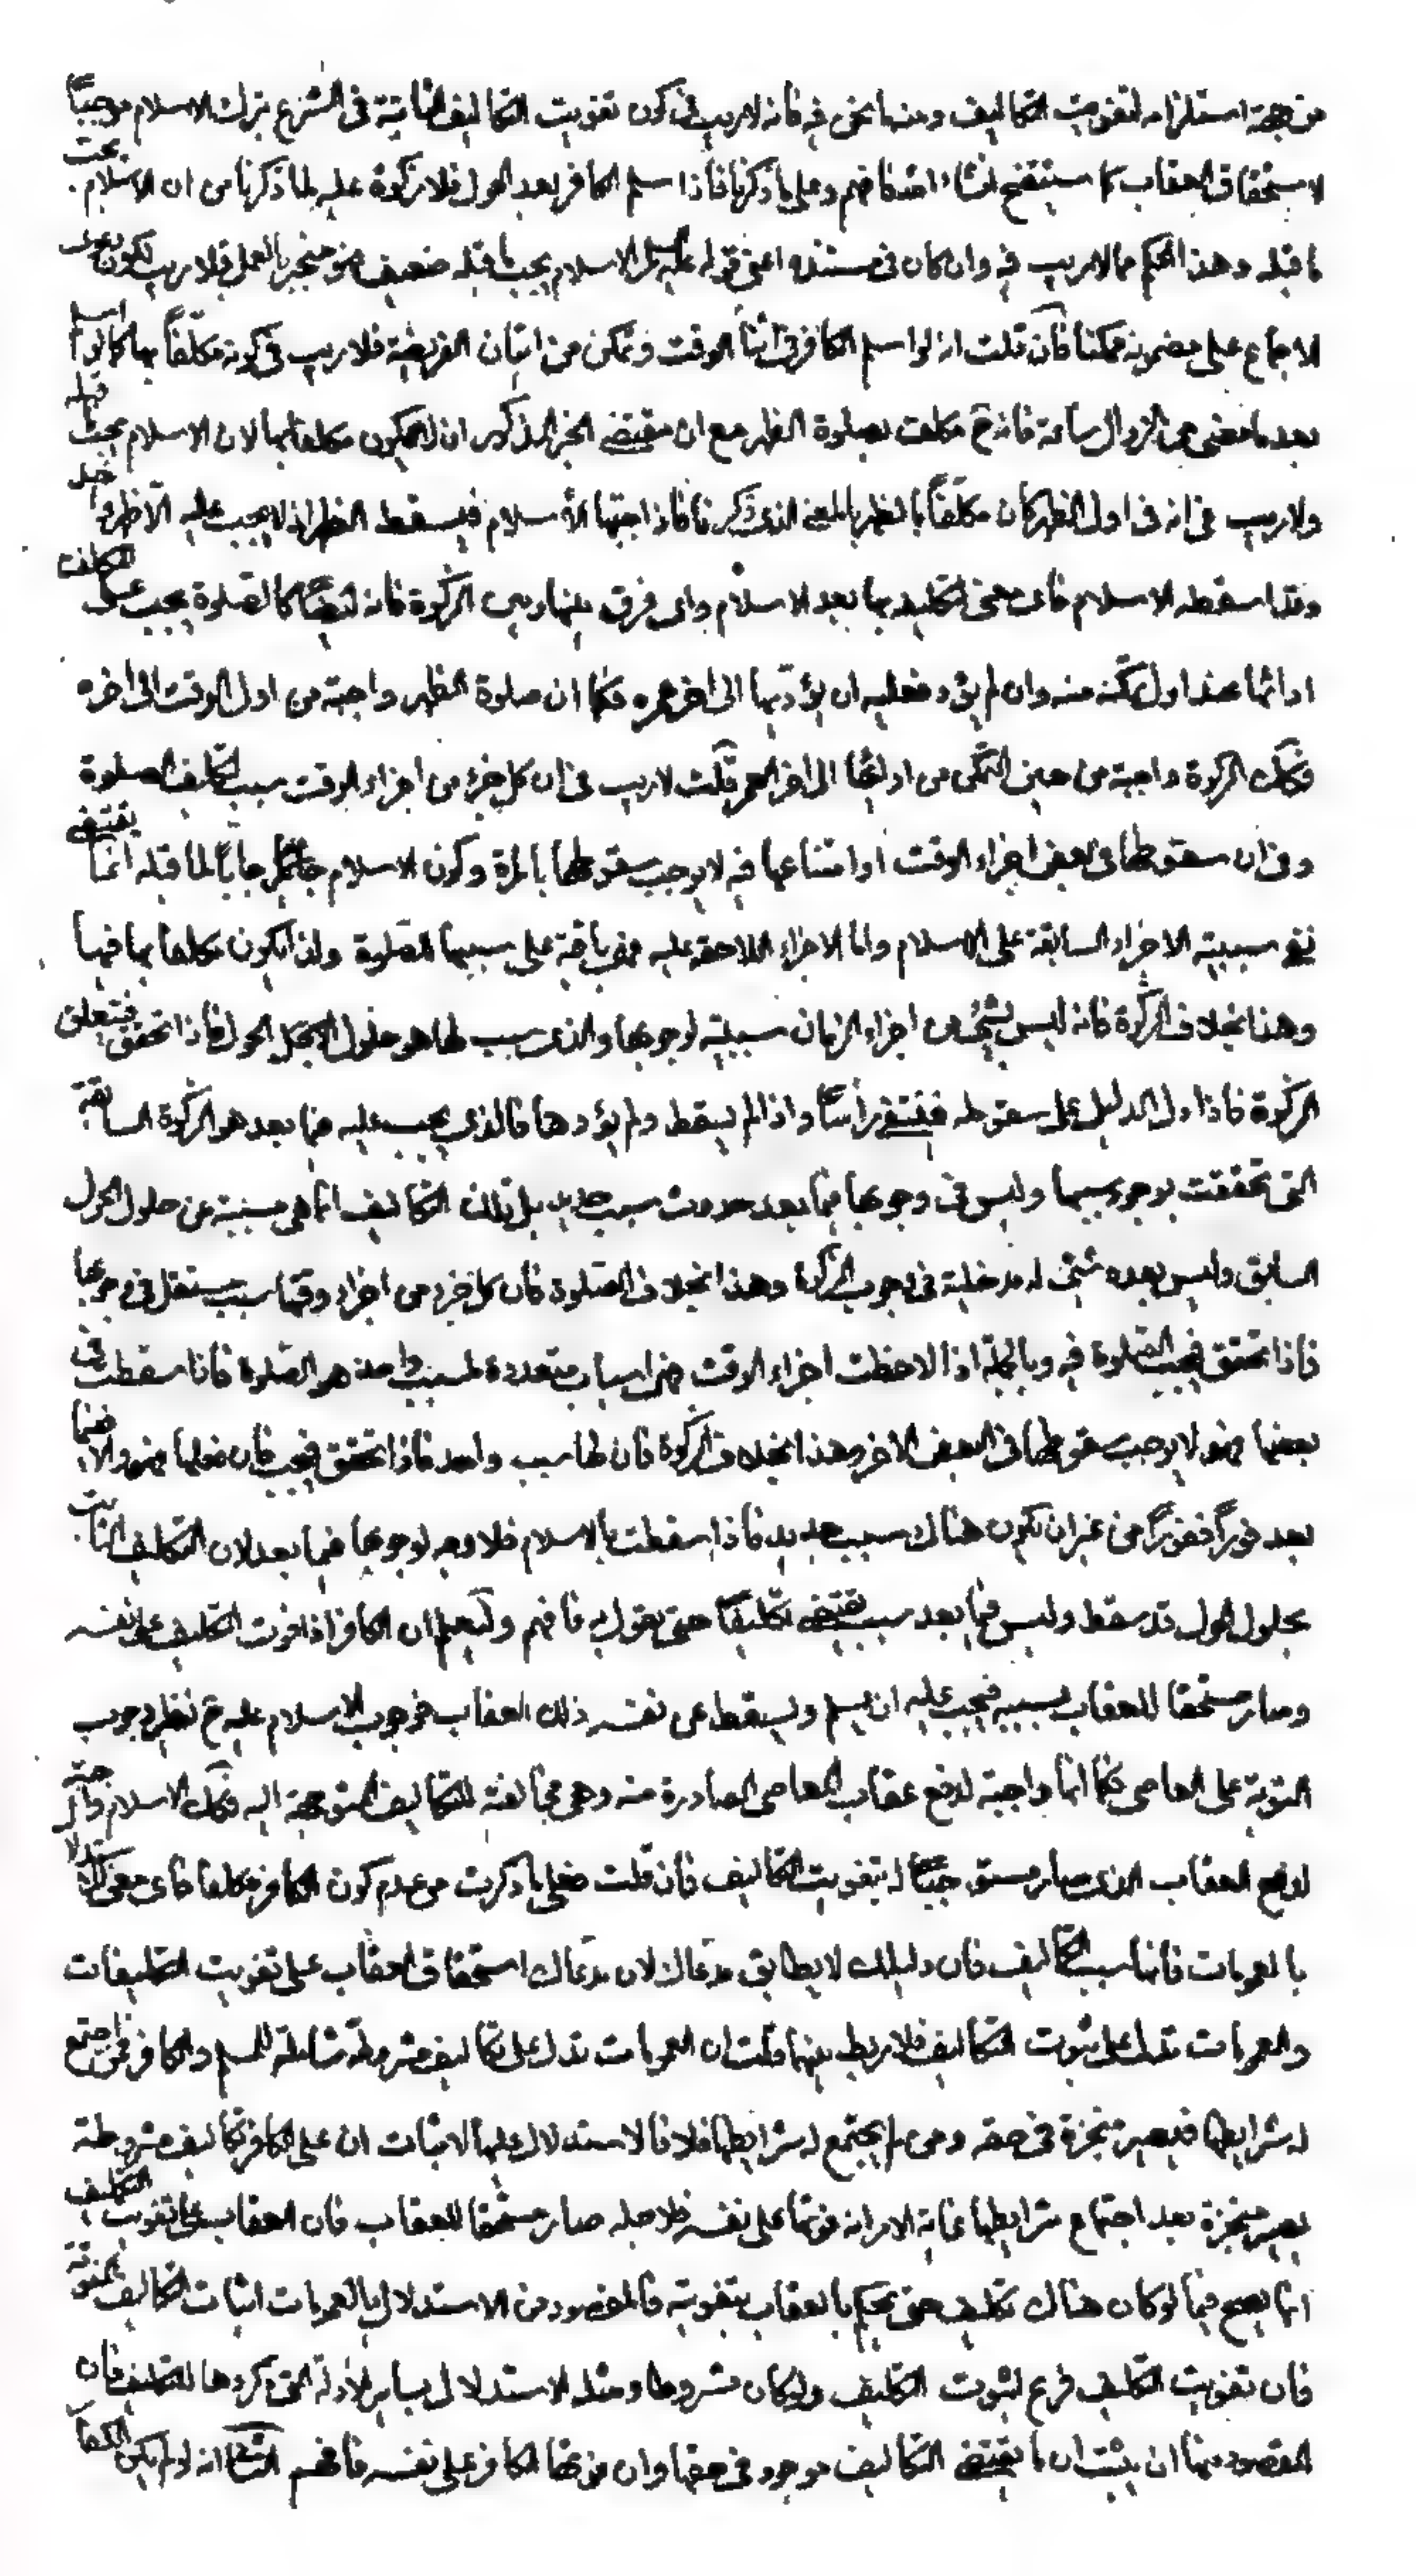 من جهة استلزامه لتفويت التكاليف ومنه ما نحن فيه فانه لاريب في كون تفويت التكاليف الثابتة في الشرع بترك الاسلام موجباً
لاستحقاق العقاب كما سيتضح انشاء الله فافهم وعلى ما ذكرنا فاذا اسلم الكافر بعد الحول فلا زكوة عليه لما ذكرنا من ان الاسلام يجب
ما قبله وهذا الحكم مما لاريب فيه وان كان في مستنده اعنى قوله عليه السلام الاسلام يجب ما قبله ضعيف فهو منجبر بالعمل فلا ريب لكون دعوى
الاجماع على مضمونه ممكناً فان قلت انه لو اسلم الكافر في اثناء الوقت وتمكن من اتيان الفريضة فلا ريب في كونه مكلفاً بها كما لو اسلم
بعد ما مضى من الزوال ساعة فانه ح مكلف بصلوة الظهر مع ان مقتضى الخبر المذكور ان لا يكون مكلفا بها لان الاسلام يجب ما قبله
ولا ريب في انه في اول الظهر كان مكلفاً بالظهر بالمعنى الذى ذكرنا فاذا اجبها الاسلام فيسقط الظهر اذ لا يجب عليه الا ظهر واحد
وقد اسقطه الاسلام فاى معنى لتكليفه بها بعد الاسلام واى فرق بينها وبين الزكوة فانه ايضاً كالصلوة يجب على المكلف
ادائها عند اول تمكنه منه وان لم يؤد فعليه ان يؤديها الى اخر عمره فكما ان صلوة الظهر واجبة من اول الوقت الى اخره
فكك الزكوة واجبة من حين التمكن من ادائها الى اخر العمر قلت لاريب في ان كل جزء من اجزاء الوقت سبب لتكليف الصلوة
وفي ان سقوطها في بعض اجزاء الوقت او امتناعها فيه لا يوجب سقوطها بالمرة وكون الاسلام جاباً لما قبله انما يقتضى
نفى سببية الاجزاء السابقة على الاسلام واما الاجزاء اللاحقة عليه فهى باقية على سببيتها للصلوة ولذا يكون مكلفا بها فيها
وهذا بخلاف الزكوة فانه ليس لشئ من اجزاء الزمان سببية لوجوبها والذى سبب لها هو حلول الحول فاذا تحقق فتعلق
الزكوة فاذا دل الدليل على سقوطه فينتفى رأساً واذا لم يسقط ولم يؤدها فالذى يجب عليه فيما بعد هو الزكوة السابقة
التى تحققت بوجود سببها وليس في وجوبها فيما بعد حدوث سبب جديد بل تلك التكاليف انما هى مسببة عن حلول الحول
السابق وليس بعده شئ له مدخلية في وجوب الزكوة وهذا بخلاف الصلوة فان كل جزء من اجزاء وقتها سبب مستقل في وجوبها
فاذا تحقق فيجب الصلوة فيه وبالجملة اذا لاحظت اجزاء الوقت فهى اسباب متعددة لمسبب واحد هو الصلوة فاذا سقطت في
بعضها فهو لا يوجب سقوطها في البعض الاخر وهذا بخلاف الزكوة فان لها سبب واحد فاذا تحقق فيجب فان فعلها فهو والا فيما
بعد فوراً ففوراً من غير ان يكون هناك سبب جديد فاذا سقطت بالاسلام فلا وجه لوجوبها فيما بعد لان التكليف الثابت
بحلول الحول قد سقط وليس فيما بعد سبب يقتضى تكليفاً حتى يقول به فافهم وليعلم ان الكافر اذا فوت التكليف على نفسه
وصار مستحقا للعقاب بسببه فيجب عليه ان يسلم ويسقط عن نفسه ذلك العقاب فوجوب الاسلام عليه ح نظير وجوب
التوبة على العاصى فكما انها واجبة لدفع عقاب المعاصى الصادرة منه وهى مخالفة للتكاليف المتوجهة اليه فكك الاسلام
لدفع العقاب الذى صار مستوجباً له بتفويت التكاليف فان قلت فعلى ما ذكرت من عدم كون الكافر مكلفا فاى معنى للاستدلال
بالعمومات فانها سبب التكاليف فان دليلك لا يطابق مدعاك لان مدعاك استحقاق العقاب على تفويت التكليفات
والعمومات تدل على ثبوت التكاليف فلا ربط بينهما قلت ان العمومات تدل على تكاليف مشروطة شاملة للمسلم والكافر فمن اجتمع
له شرايطها فيصير منجزة في حقه ومن لم يجتمع له شرايطها فلا فالاستدلال عليها لاثبات ان على الكافر تكاليف مشروطة
يصير منجزة بعد اجتماع شرايطها غاية الامر انه فوتها على نفسه فلاجله صار مستحقا للعقاب فان العقاب على تفويت التكليف
انما يصح فيما لو كان هناك تكليف حتى يحكم بالعقاب بتفويته فالمقصود من الاستدلال بالعمومات اثبات التكاليف
فان تفويت التكليف فرع لثبوت التكليف ولو كان مشروطا ومثله الاستدلال بساير الادلة التى ذكروها للتكليف فان
المقصود منها ان يثبت ان ما يقتضى التكاليف موجود في حقها وان فوتها الكافر على نفسه فافهم الثالث انه لو لم يكن الكفار